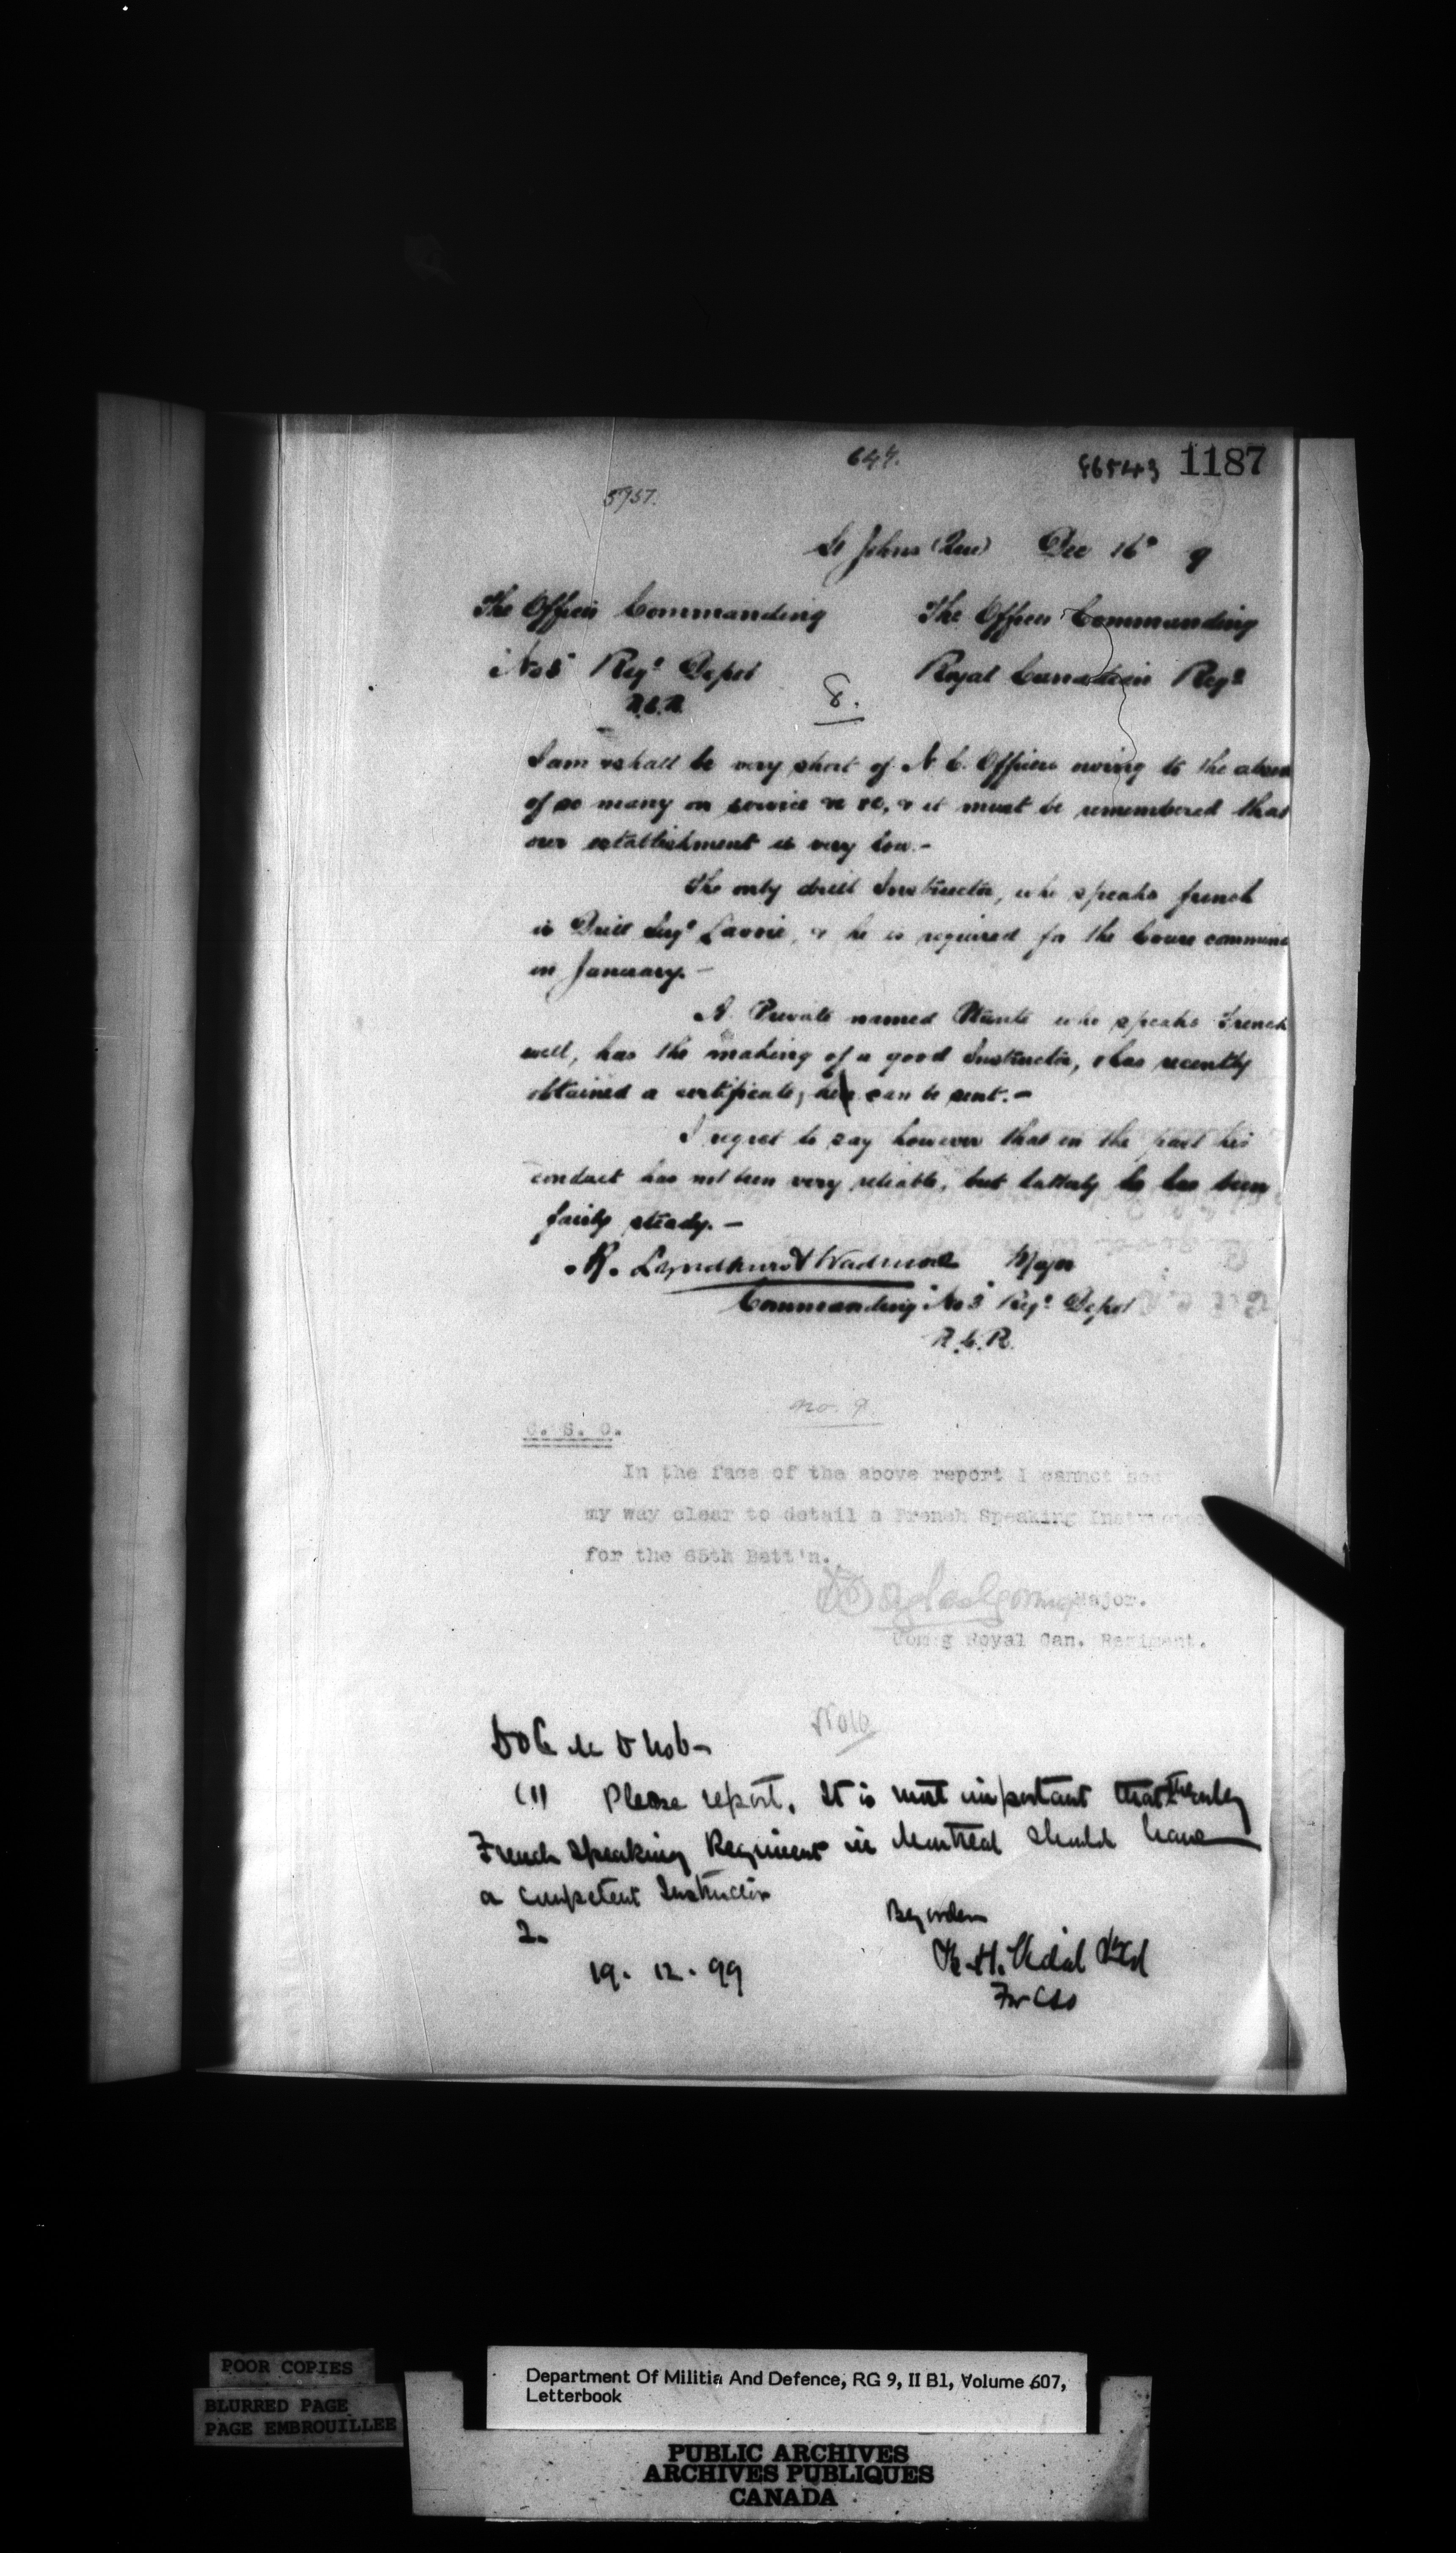 647.
1187
5757.
St Johns (Que) Dec 16º 9
The Officer Commanding
The Officer Commanding
No 3 Regl Depot
Royal Canadian Regt
R.C.R.
8.
I am & shall be very short of N. C. Officers owing to the absence
of so many on service &c &c, & it must be remembered that
our establishment is very low.-
The only drill Instructor, who speaks french
is Drill Sergt Lavoie, & he is required for the Course
in January.-
A Private named who speaks French
well, has the making of a good Instructor, & has recently
obtained a certificate; he can be sent.-
I regret to say however that in the past his
conduct has not been very reliable, but latterly he has been
fairly steady.-
R. Lyndhurst Wadmore Major
Commanding No 3 Regl Depot
R.C.R.
no. 9
C. S. O.
In the face of the above report I cannot see
my way clear to detail a French Speaking Instructor
for the 65th Batt'n.
Major.
Com'g Royal Can. Regiment.
No 10
DOC M D No 6-
(1) Please report. It is most important that the only
French speaking Regiment in Montreal should have
a competent Instructor
2.
By order
19. 12. 99
B. H. Vidal
For CSO
POOR COPIES
BLURRED PAGE
PAGE EMBROUILLEE
Department Of Militia And Defence, RG 9, II B1, Volume 607,
Letterbook
PUBLIC ARCHIVES
ARCHIVES PUBLIQUES
CANADA